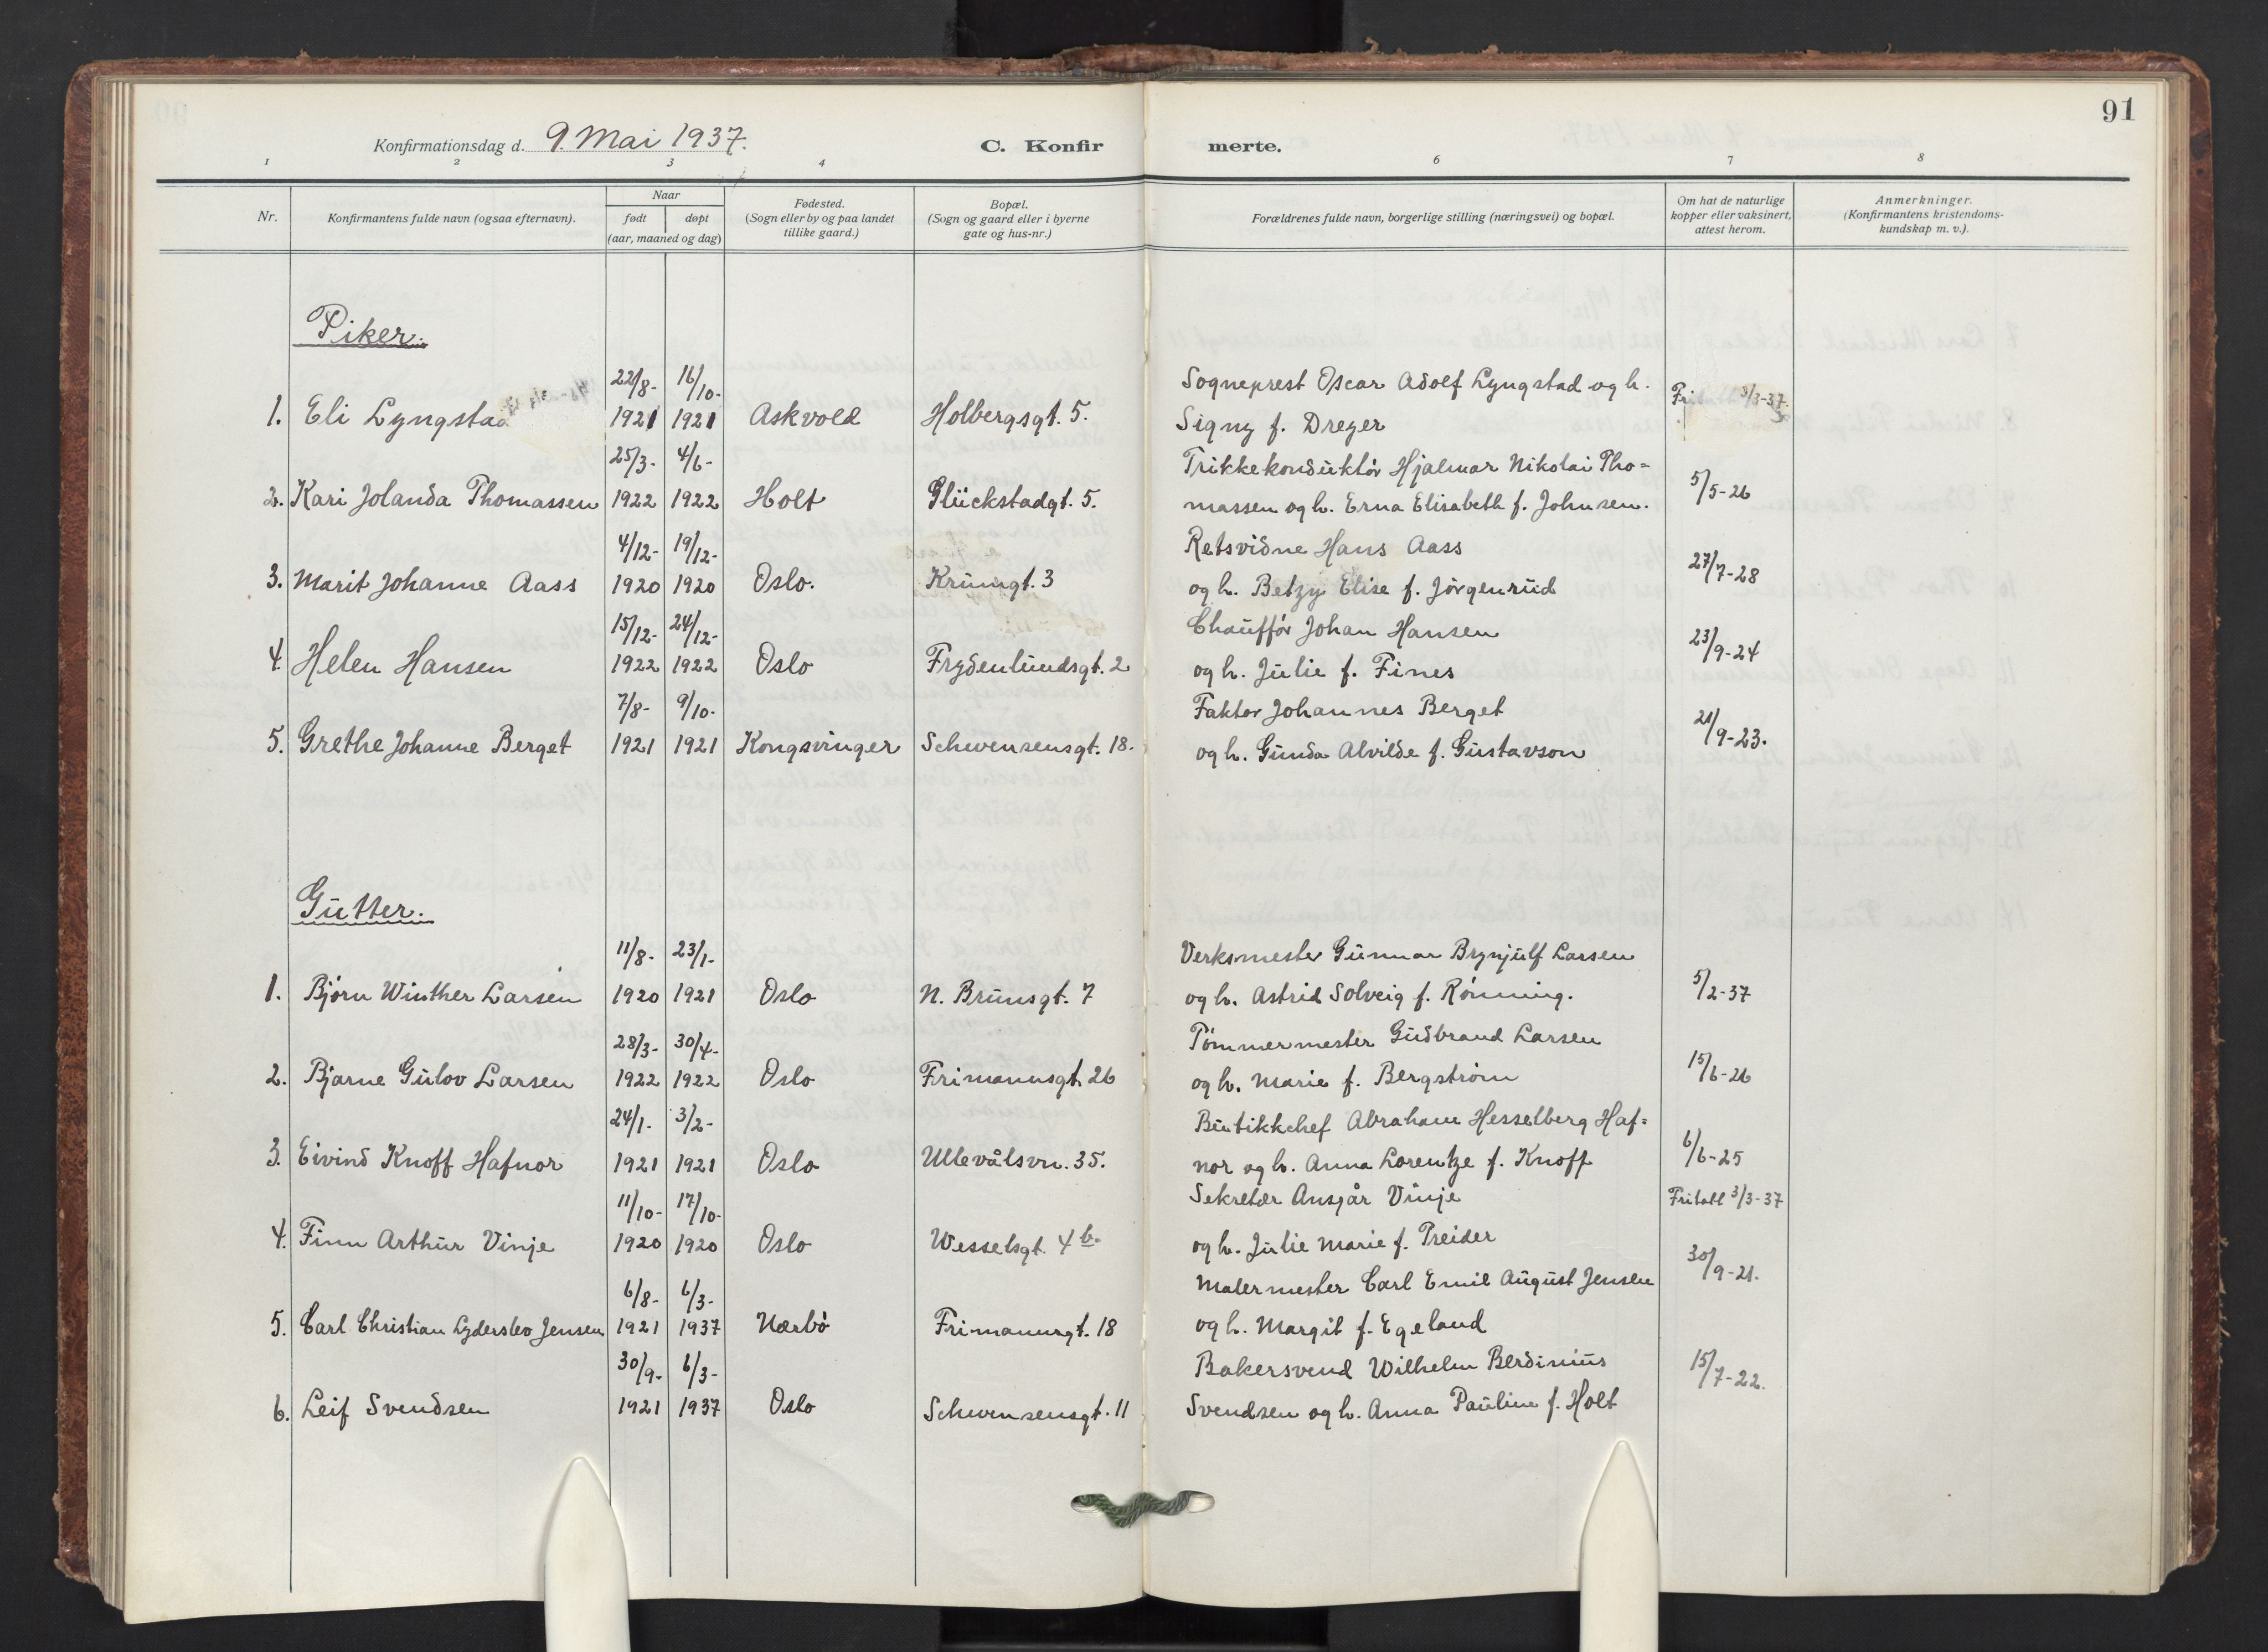 91
Konfirmationsdag d. 9. Mai 1937.
C. Konfir
merte.
1 2 3 4 6 7 8
Nr.
Konfirmantens fulde navn (ogsaa efternavn).
Naar
født døpt
(aar, maaned og dag)
Fødested.
(Sogn eller by og paa landet
tillike gaard.)
Bopæl.
(Sogn og gaard eller i byerne
gate og hus-nr.)
Forældrenes fulde navn, borgerlige stilling (næringsvei) og bopæl.
Om hat de naturlige
kopper eller vaksinert,
attest herom.
Anmerkninger.
(Konfirmantens kristendoms-
kundskap m. v.).
Piker.
22/8- 16/10- Sogneprest Oscar Adolf Lyngstad og h.
1. Eli Lyngstad 1921 1921 Askvold Holbergsgt. 5. Signy f. Dreyer 3/3-37.
25/3- 4/6- Trikkekonduktör Hjalmar Nikolai Tho=
2. Kari Jolanda Thomassen 1922 1922 Holt Glückstadgt. 5. massen og h. Erna Elisabeth f. Johnsen. 5/5-26
4/12- 19/12- Retsvidne Hans Aass
3. Marit Johanne Aass 1920 1920 Oslo. Krumgt. 3 og h. Betzy Elise f. Jörgenrud 27/7-28
15/12- 24/12- Chaufför Johan Hansen
4. Helen Hansen 1922 1922 Oslo Frydenlundsgt. 2 og h. Julie f. Fines 23/9-24
7/8- 9/10- Faktor Johannes Berget
5. Grethe Johanne Berget 1921 1921 Kongsvinger Schwensensgt. 18. og h. Gunda Alvilde f. Gustavson 21/9-23.
Gutter.
11/8- 23/1- Verksmester Gunnar Brynjulf Larsen
1. Björn Winther Larsen 1920 1921 Oslo N. Brunsgt. 7 og h. Astrid Solveig f. Rönning. 5/2-37
28/3- 30/4- Tömmermester Gudbrand Larsen
2. Bjarne Gulov Larsen 1922 1922 Oslo Frimannsgt. 26 og h. Marie f. Bergström 15/6-26
24/1- 3/2- Butikkchef Abraham Hesselberg Haf=
3. Eivind Knoff Hafnor 1921 1921 Oslo Ullevålsvn. 35. nor og h. Anna Lorentze f. Knoff 6/6-25
11/10- 17/10- Sekretær Ansgår Vinje Fritatt 3/3-37
4. Finn Arthur Vinje 1920 1920 Oslo Wesselsgt. 4 b. og h. Julie Marie f. Preider
6/8- 6/3- Malermester Carl Emil August Jensen 30/9-21.
5. Carl Christian Lyderslev Jensen 1921 1937 Nærbö Frimannsgt. 18 og h. Margit f. Egeland
30/9- 6/3- Bakersvend Wilhelm Berdinius 15/7-22.
6. Leif Svendsen 1921 1937 Oslo Schwensensgt. 11 Svendsen og h. Anna Pauline f. Holt